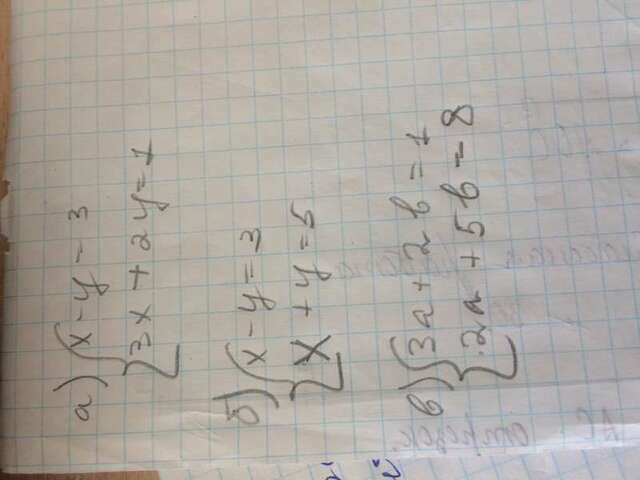 а) { x - y = 3
3x + 2y = 1
б) { x - y = 3
x + y = 5
в) { 3a + 2b = 1
2a + 5b = 8